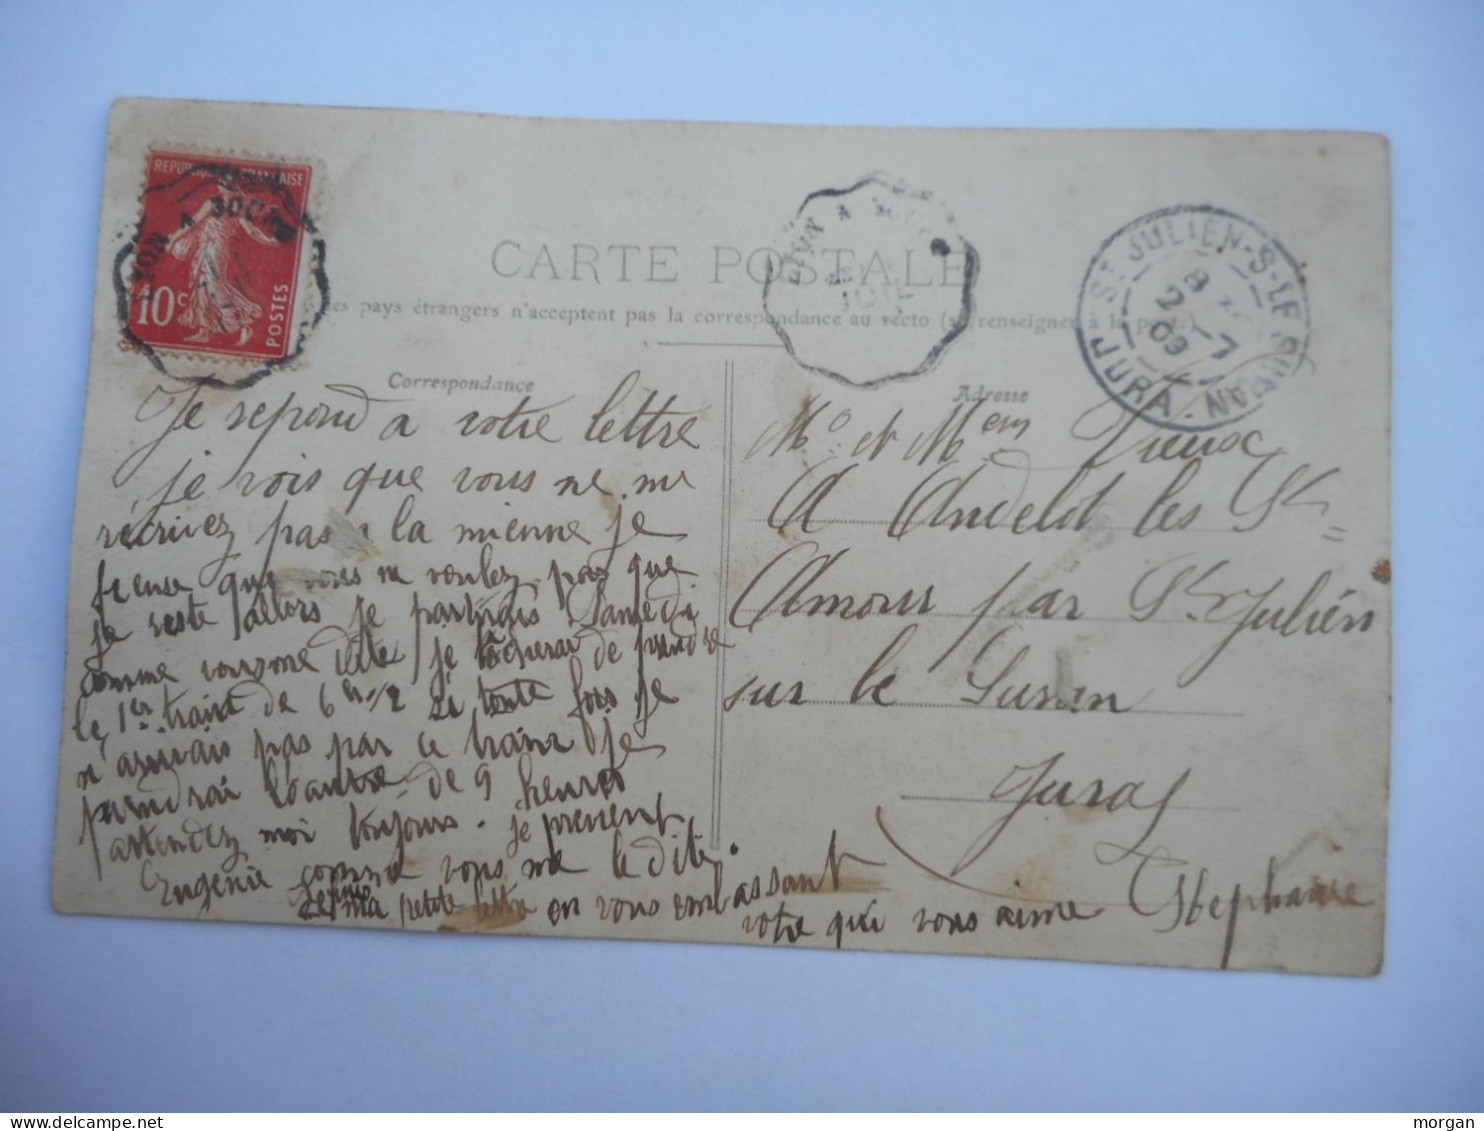 REPUBLIQUE FRANCAISE
10c POSTES
LYON A
CARTE POSTALE
LYON A
JUIL
ST JULIEN-S-LE SURAN
JURA
2 - 7
09
es pays étrangers n'acceptent pas la correspondance au recto (se renseigner à la poste)
Correspondance
Adresse
Je repond a votre lettre
je vois que vous ne me
récrivez pas a la mienne je
pense que vous ne voulez pas que
je reste allors je partirais Samedi
comme de prendre
le 1er traint de 6 h 1/2 si toute fois je
n'arrivais pas par ce train je
prendrai l'autre de 9 heures
attendez moi toujours. je previent
Eugénie comme vous me le dite
ma petite lettre en vous embassant
votre qui vous aime Stephanie
Mr et Mem Vieux
A Andelot les St=
Amour par St Julien
sur le Suran
Juras
morgan